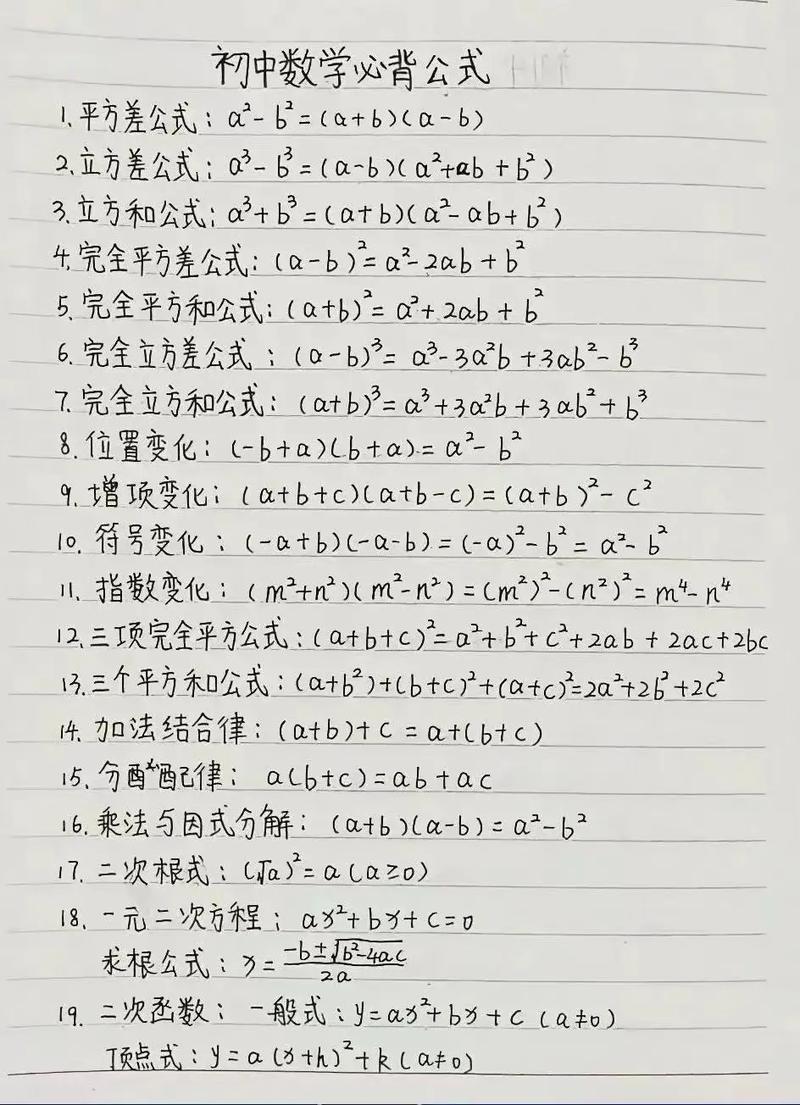 初中数学必背公式
1.平方差公式：a²-b²=(a+b)(a-b)
2.立方差公式：a³-b³=(a-b)(a²+ab+b²)
3.立方和公式：a³+b³=(a+b)(a²-ab+b²)
4.完全平方差公式：(a-b)²=a²-2ab+b²
5.完全平方和公式：(a+b)²=a²+2ab+b²
6.完全立方差公式：(a-b)³=a³-3a²b+3ab²-b³
7.完全立方和公式：(a+b)³=a³+3a²b+3ab²+b³
8.位置变化：(-b+a)(b+a)=a²-b²
9.增项变化：(a+b+c)(a+b-c)=(a+b)²-c²
10.符号变化：(-a+b)(-a-b)=(-a)²-b²=a²-b²
11.指数变化：(m²+n²)(m²-n²)=(m²)²-(n²)²=m⁴-n⁴
12.三项完全平方公式：(a+b+c)²=a²+b²+c²+2ab+2ac+2bc
13.三个平方和公式：(a+b²)+(b+c)²+(a+c)²=2a²+2b²+2c²
14.加法结合律：(a+b)+c=a+(b+c)
15.分配律：a(b+c)=ab+ac
16.乘法与因式分解：(a+b)(a-b)=a²-b²
17.二次根式：(√a)²=a(a≥0)
18.一元二次方程：ax²+bx+c=0
求根公式：x=(-b±√(b²-4ac))/2a
19.二次函数：一般式：y=ax²+bx+c(a≠0)
顶点式：y=a(x+h)²+k(a≠0)